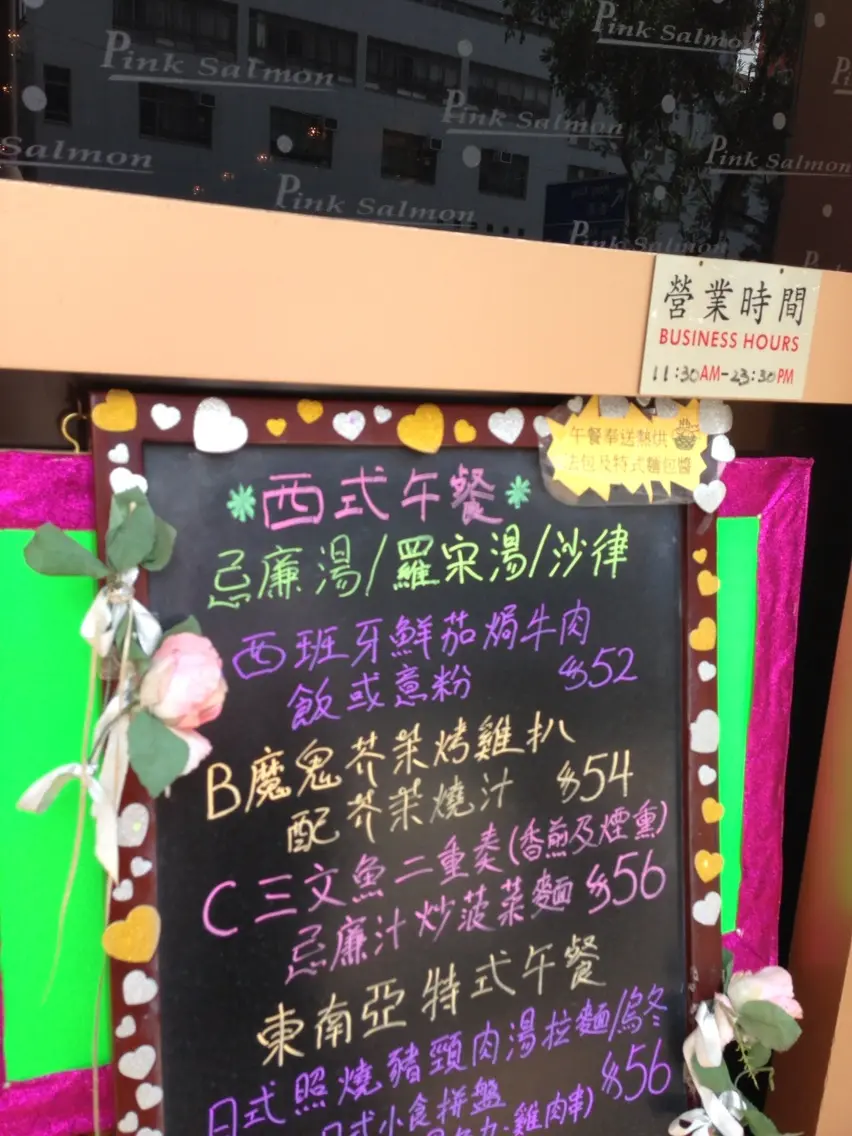 Pink Salmon
Pink Salmon
Pink Salmon
Salmon
Pink Salmon
Pink Salmon
Pink Salmon
營業時間
BUSINESS HOURS
11:30AM-23:30PM
午餐奉送熱烘
法包及特式麵包醬
西式午餐
忌廉湯/羅宋湯/沙律
西班牙鮮茄焗牛肉
飯或意粉 $52
B魔鬼芥茉烤雞扒
配芥茉燒汁 $54
C三文魚二重奏(香煎及煙熏)
忌廉汁炒菠菜麵 $56
東南亞特式午餐
日式照燒豬頸肉湯拉麵/烏冬
日式小食拼盤 $56
雞肉串)